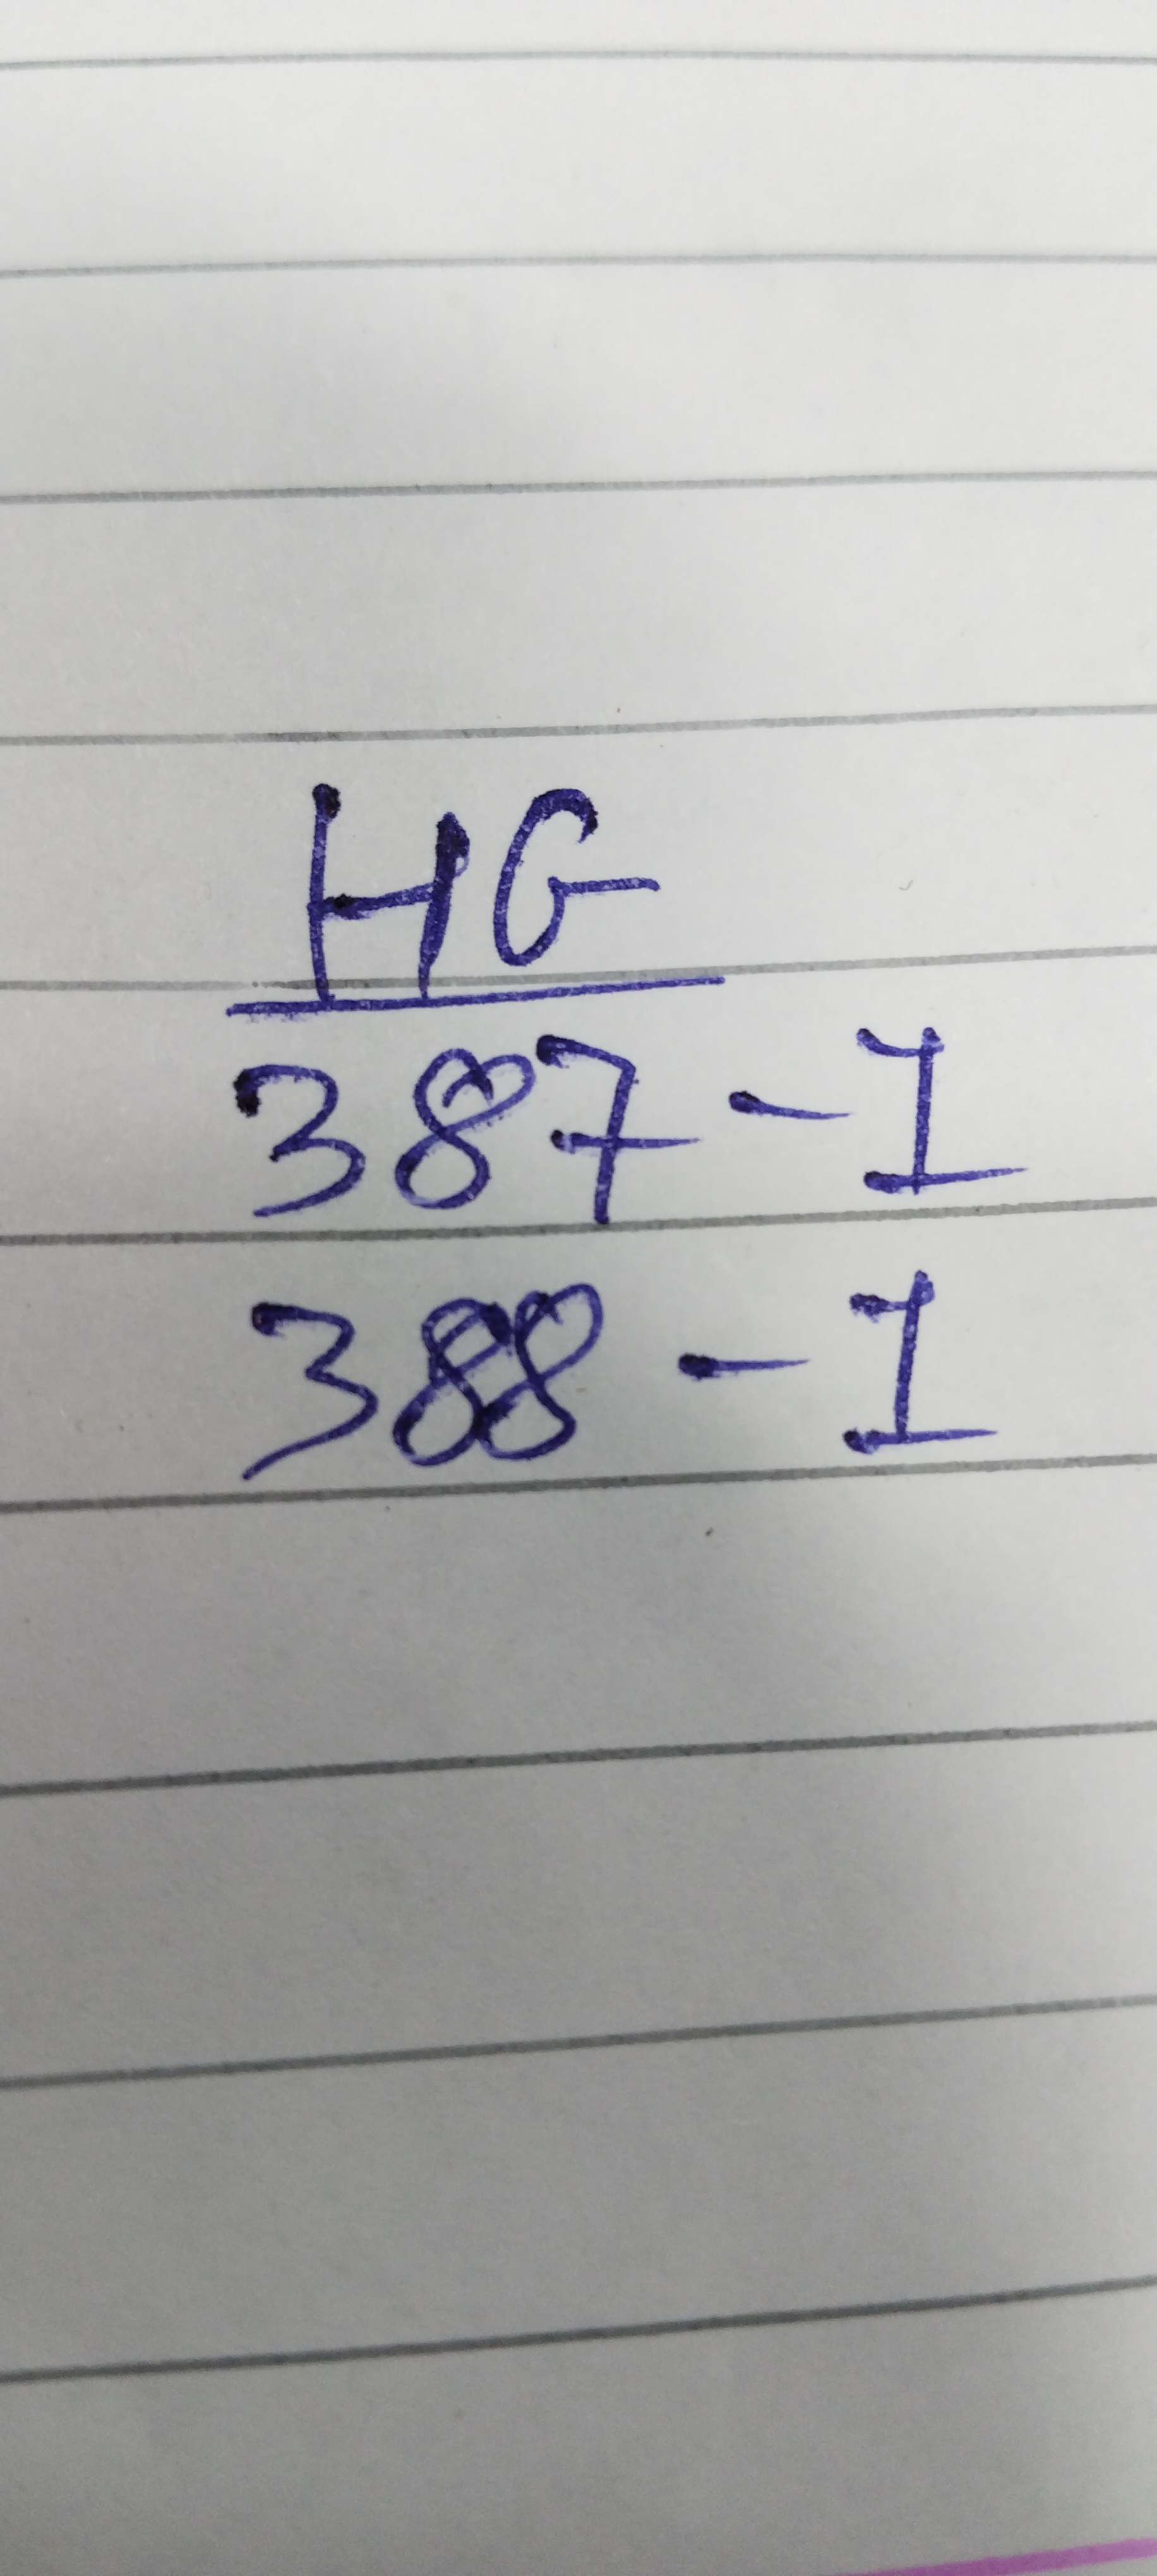 HG
387-1
388-1